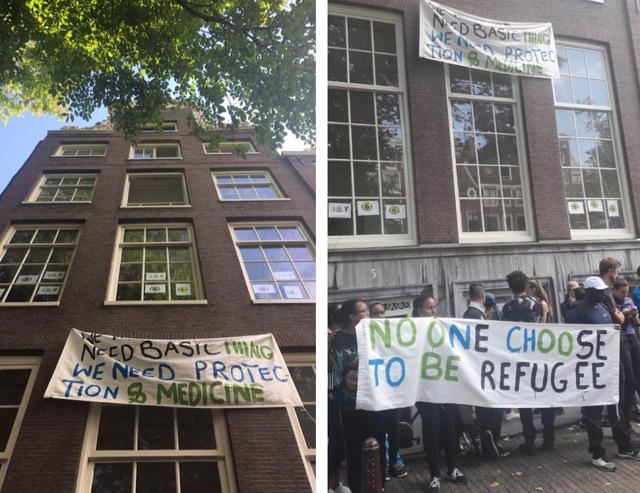 NEED BASIC THING
WE NEED PROTEC
TION & MEDICINE
NEED BASIC THING
WE NEED PROTEC
TION & MEDICINE
5
NO ONE CHOOSE
TO BE REFUGEE